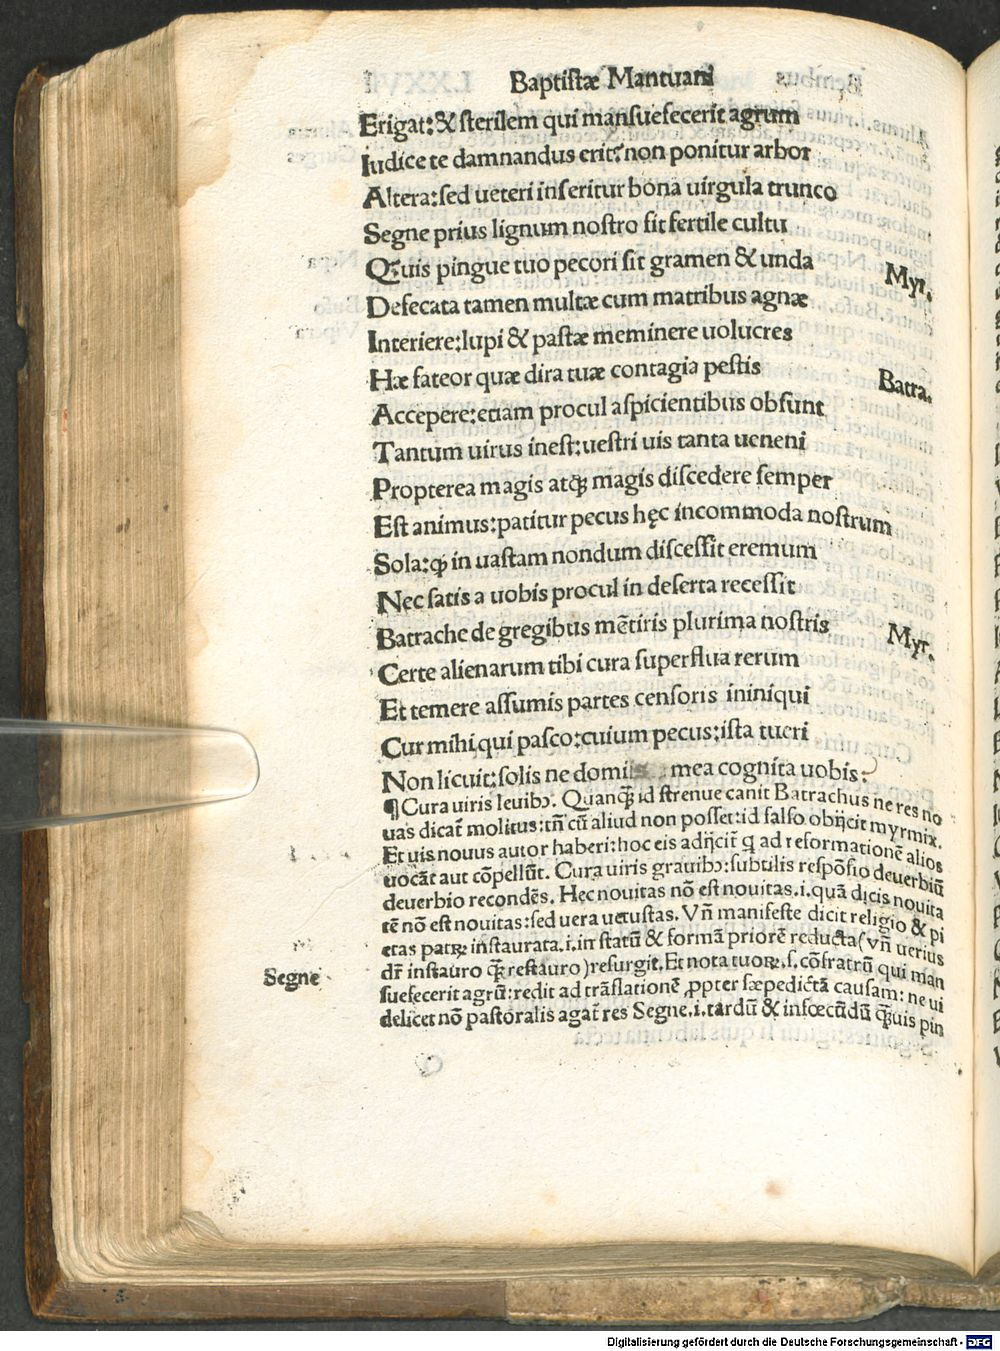 Baptistæ Mantuani
Erigat: & sterilem qui mansuefecerit agrum
Iudice te damnandus erit? non ponitur arbor
Altera: sed ueteri inseritur bona uirgula trunco
Segne prius lignum nostro fit fertile cultu
Q̃uis pingue tuo pecori sit gramen & unda Myr.
Defecata tamen multæ cum matribus agnæ
Interiere: lupi & pastæ meminere uolucres
Hæ fateor quæ dira tuæ contagia pestis Batra.
Accepere: etiam procul aspicientibus obsunt
Tantum uirus inest: uestri uis tanta ueneni
Propterea magis atq; magis discedere semper
Est animus: patitur pecus hęc incommoda nostrum
Sola: ꝙ in uastam nondum discessit eremum
Nec satis a uobis procul in deserta recessit
Batrache de gregibus mẽtiris plurima nostris Myr.
Certe alienarum tibi cura superflua rerum
Et temere assumis partes censoris ininiqui
Cur mihi, qui pasco: cuium pecus: ista tueri
Non licuit: solis ne domi mea cognita uobis:
¶ Cura uiris leuibꝰ. Quanq̃ id strenue canit Batrachus ne res no
uas dicat̃ molitus: tñ cũ aliud non posset: id falso obijcit myrmix.
Et uis nouus autor haberi: hoc eis adijcit ꝙ ad reformationẽ alios
uocãt aut cõpellũt. Cura uiris grauibꝰ: subtilis respõsio deuerbiũ
deuerbio recondẽs. Hec nouitas nõ est nouitas. i. quã dicis nouita
tẽ nõ est nouitas: sed uera uetustas. Vñ manifeste dicit religio & pi
etas patrꝝ instaurata. i. in statũ & formã priorẽ reducta (vñ uerius
dr̃ instauro q̃ restauro) resurgit. Et nota tuoꝝ. s. cõfratrũ qui man
Segne suefecerit agrũ: redit ad trãslationẽ ꝓpter sæpedictã causam: ne ui
delicet nõ pastoralis agat̃ res Segne. i. tardũ & infœcũdũ q̃uis pin
Digitalisierung gefördert durch die Deutsche Forschungsgemeinschaft - DFG